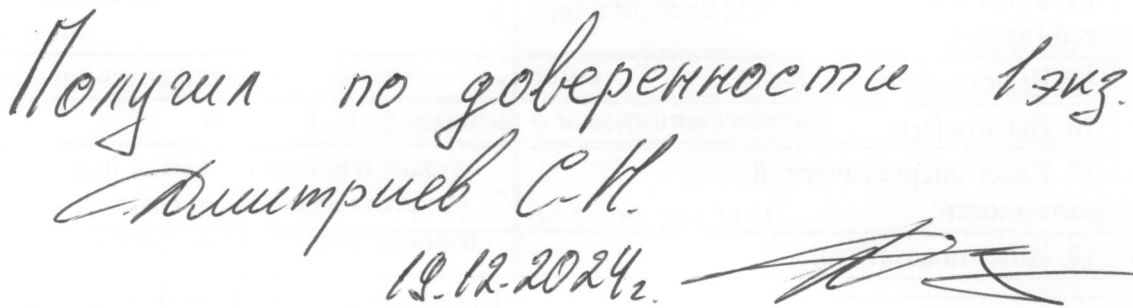 Получил по доверенности 1 экз.
Дмитриев С.Н.
19.12.2024г.